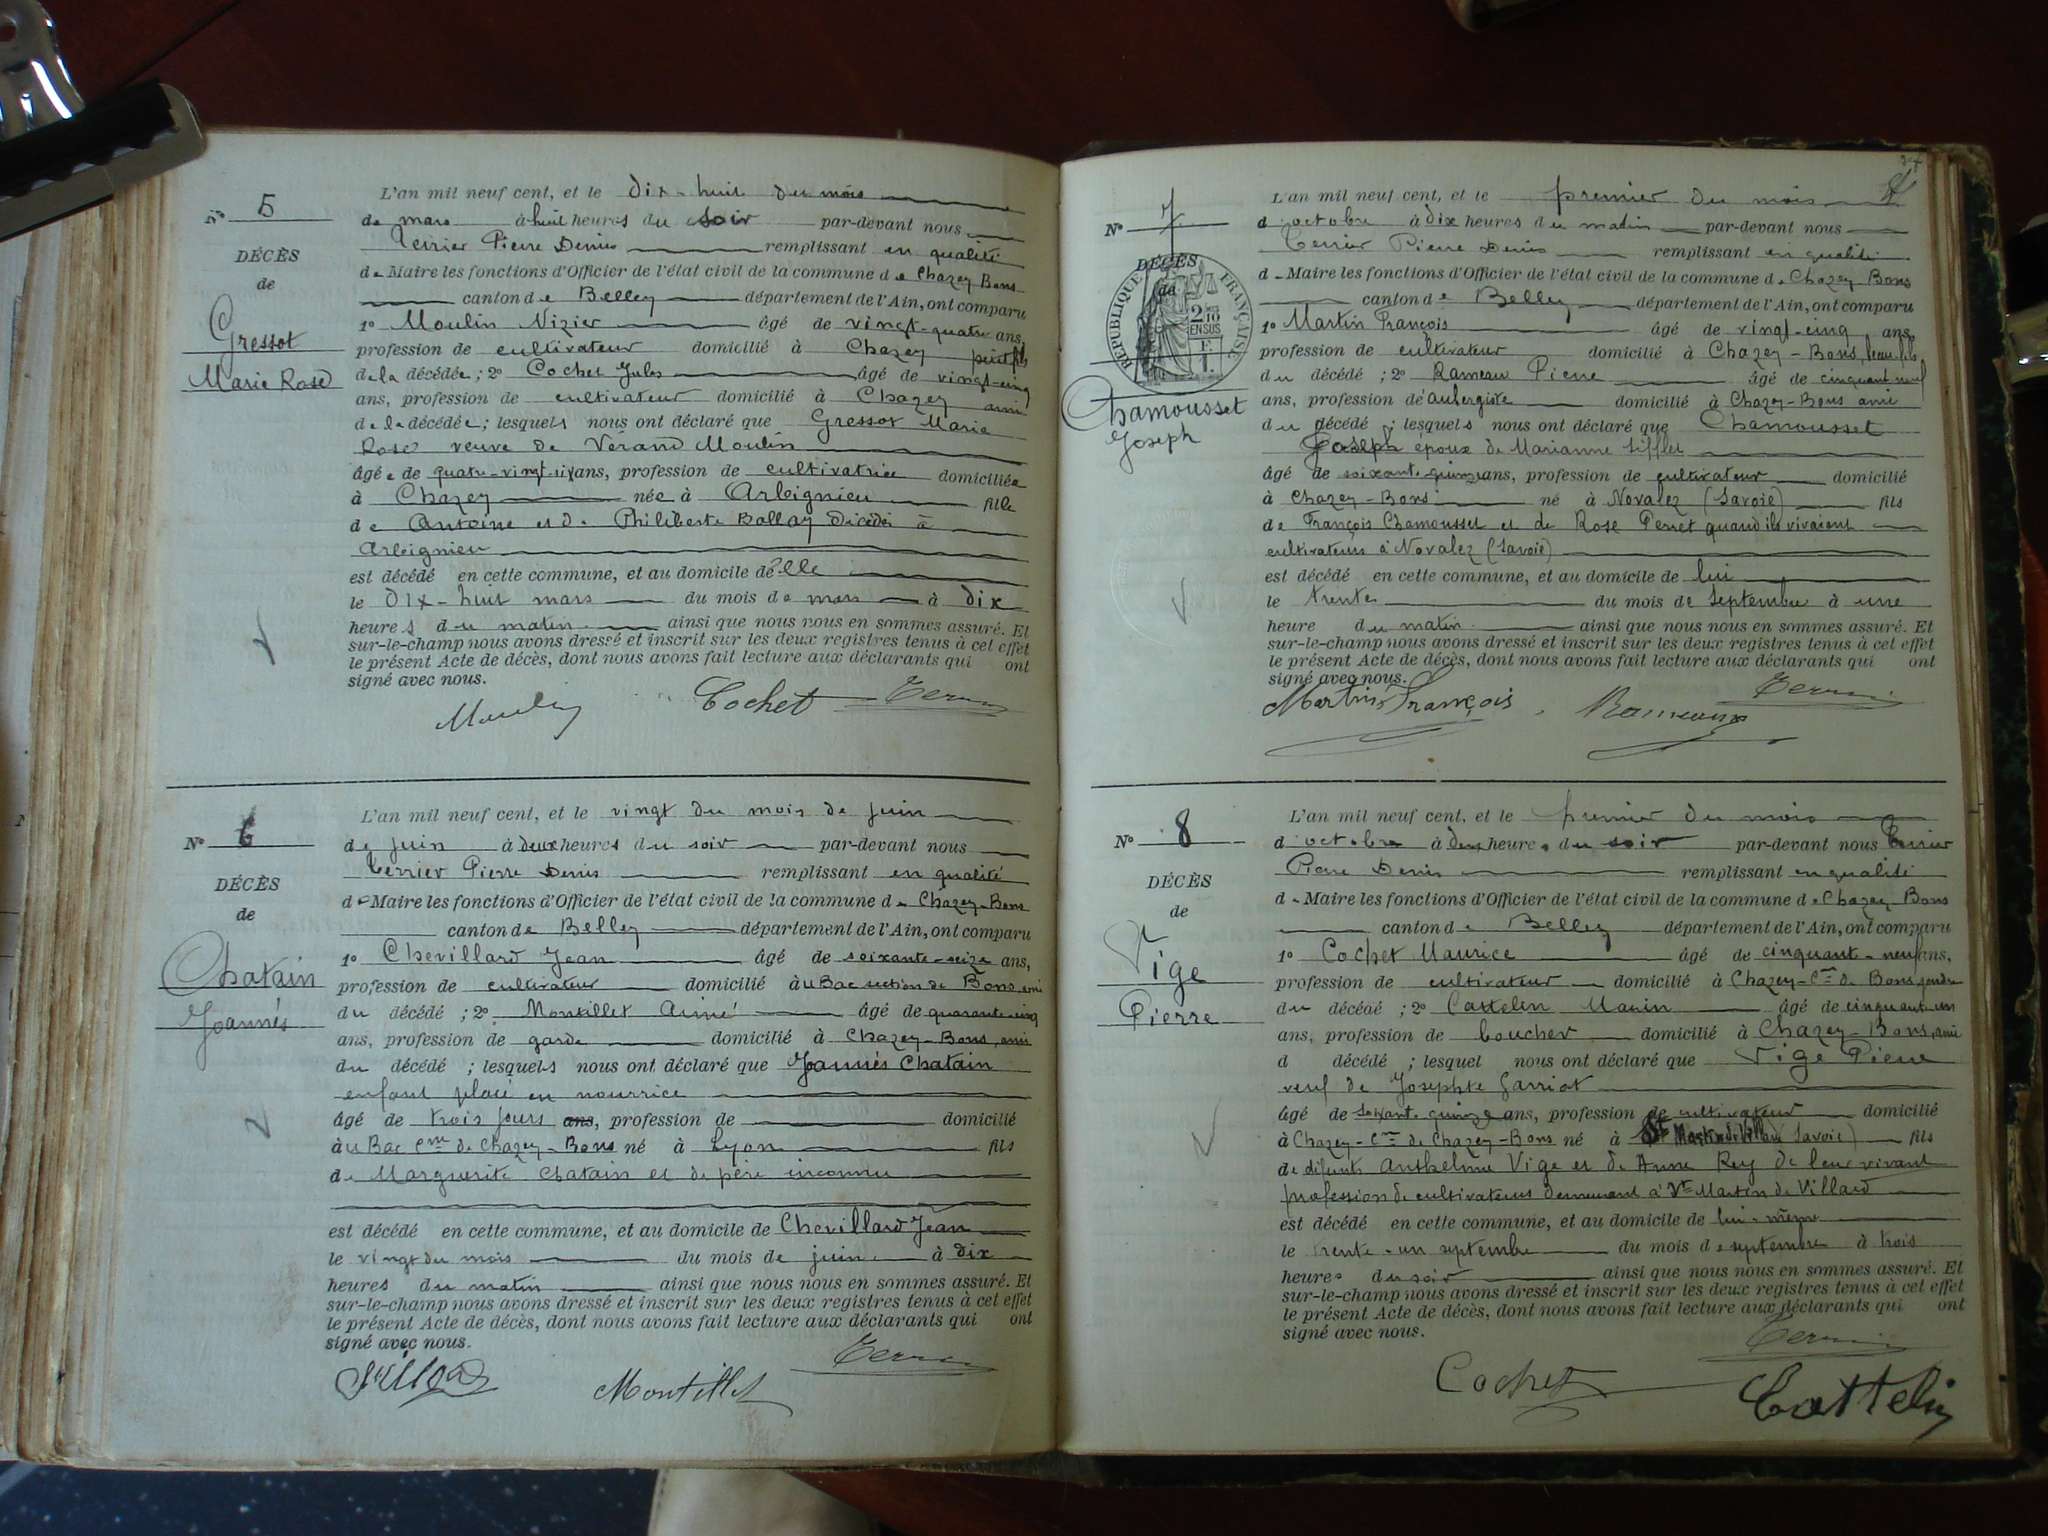 N° 5
DÉCÈS
de
Gressot
Marie Rose
L'an mil neuf cent, et le dix-huit du mois
de mars à huit heures du soir par-devant nous
Terrier Pierre Denis remplissant en qualité
de Maire les fonctions d'Officier de l'état civil de la commune de Chazey-Bons
canton de Belley département de l'Ain, ont comparu
1° Moulin Vizier âgé de vingt-quatre ans,
profession de cultivateur domicilié à Chazey petit fils
de la décédée; 2° Cochet Jules âgé de vingt-cinq
ans, profession de cultivateur domicilié à Chazey ami
de la décédée; lesquels nous ont déclaré que Gressot Marie
Rose veuve de Vérand Moulin
âgée de quatre-vingt-six ans, profession de cultivatrice domiciliée
à Chazey née à Arbignieu fille
de Antoine et de Philiberte Ballay décédés à
Arbignieu
est décédé en cette commune, et au domicile d'elle
le dix-huit mars du mois de mars à dix
heures du matin ainsi que nous nous en sommes assuré. Et
sur-le-champ nous avons dressé et inscrit sur les deux registres tenus à cet effet
le présent Acte de décès, dont nous avons fait lecture aux déclarants qui ont
signé avec nous.
Moulin Cochet Terrier
N° 6
DÉCÈS
de
Chatain
Joannès
L'an mil neuf cent, et le vingt du mois de juin
de juin à deux heures du soir par-devant nous
Terrier Pierre Denis remplissant en qualité
de Maire les fonctions d'Officier de l'état civil de la commune de Chazey-Bons
canton de Belley département de l'Ain, ont comparu
1° Chevillard Jean âgé de soixante-seize ans,
profession de cultivateur domicilié au Bac section de Bons, ami
du décédé; 2° Montillet Aimé âgé de quarante-cinq
ans, profession de garde domicilié à Chazey-Bons, ami
du décédé; lesquels nous ont déclaré que Joannès Chatain
enfant placé en nourrice
âgé de trois jours ans, profession de domicilié
au Bac Cne de Chazey-Bons né à Lyon fils
de Marguerite Chatain et de père inconnu
est décédé en cette commune, et au domicile de Chevillard Jean
le vingt du mois du mois de juin à dix
heures du matin ainsi que nous nous en sommes assuré. Et
sur-le-champ nous avons dressé et inscrit sur les deux registres tenus à cet effet
le présent Acte de décès, dont nous avons fait lecture aux déclarants qui ont
signé avec nous.
Montillet Terrier
N° 7
DÉCÈS
de
RÉPUBLIQUE FRANÇAISE
2/10 EN SUS
Chamousset
Joseph
L'an mil neuf cent, et le premier du mois
d'octobre à dix heures du matin par-devant nous
Terrier Pierre Denis remplissant en qualité
de Maire les fonctions d'Officier de l'état civil de la commune de Chazey-Bons
canton de Belley département de l'Ain, ont comparu
1° Martin François âgé de vingt-cinq ans,
profession de cultivateur domicilié à Chazey-Bons, beau-fils
du décédé; 2° Rameau Pierre âgé de cinquante-neuf
ans, profession d'aubergiste domicilié à Chazey-Bons ami
du décédé; lesquels nous ont déclaré que Chamousset
Joseph époux de Marianne Sifflet
âgé de soixante-quinze ans, profession de cultivateur domicilié
à Chazey-Bons né à Novalez (Savoie) fils
de François Chamousset et de Rose Perret quand ils vivaient
cultivateurs à Novalez (Savoie)
est décédé en cette commune, et au domicile de lui
le trente du mois de septembre à une
heure du matin ainsi que nous nous en sommes assuré. Et
sur-le-champ nous avons dressé et inscrit sur les deux registres tenus à cet effet
le présent Acte de décès, dont nous avons fait lecture aux déclarants qui ont
signé avec nous.
Martin François Rameaux Terrier
N° 8
DÉCÈS
de
Vige
Pierre
L'an mil neuf cent, et le premier du mois
d'octobre à deux heures du soir par-devant nous Terrier
Pierre Denis remplissant en qualité
de Maire les fonctions d'Officier de l'état civil de la commune de Chazey-Bons
canton de Belley département de l'Ain, ont comparu
1° Cochet Maurice âgé de cinquante-neuf ans,
profession de cultivateur domicilié à Chazey-Cne de Bons, gendre
du décédé; 2° Cattelin Marin âgé de cinquante-un
ans, profession de boucher domicilié à Chazey-Bons, ami
d décédé; lesquel nous ont déclaré que Vige Pierre
veuf de Josephte Garriot
âgé de soixante-quinze ans, profession de cultivateur domicilié
à Chazey-Cne de Chazey-Bons né à St Martin de Villard Savoie) fils
de défunts Anthelme Vige et de Anne Rey de leur vivant
profession de cultivateurs demeurant à St Martin de Villard
est décédé en cette commune, et au domicile de lui-même
le trente-un septembre du mois de septembre à trois
heures du soir ainsi que nous nous en sommes assuré. Et
sur-le-champ nous avons dressé et inscrit sur les deux registres tenus à cet effet
le présent Acte de décès, dont nous avons fait lecture aux déclarants qui ont
signé avec nous.
Terrier
Cochet Cattelin